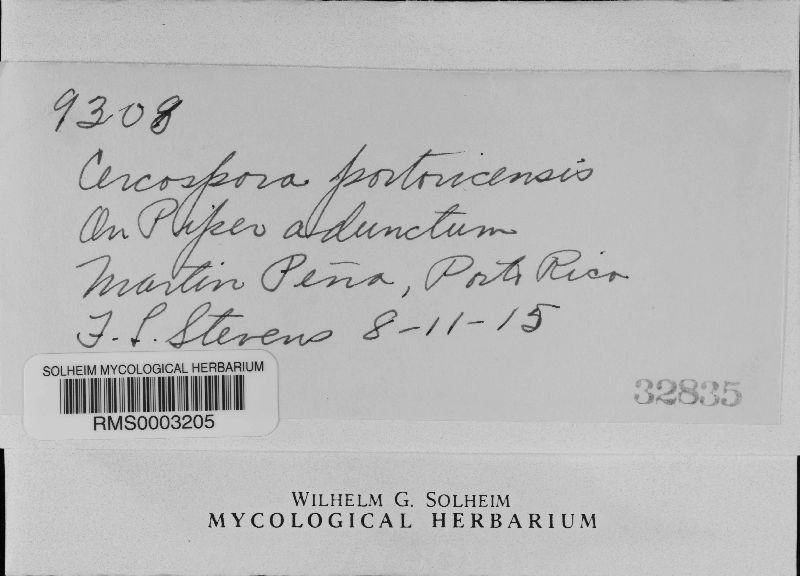 9308
Cercospora portoricensis
On Piper adunctum
Martin Peña, Porto Rico
F. L. Stevens 8-11-15
SOLHEIM MYCOLOGICAL HERBARIUM
RMS0003205
32835
WILHELM G. SOLHEIM
MYCOLOGICAL HERBARIUM